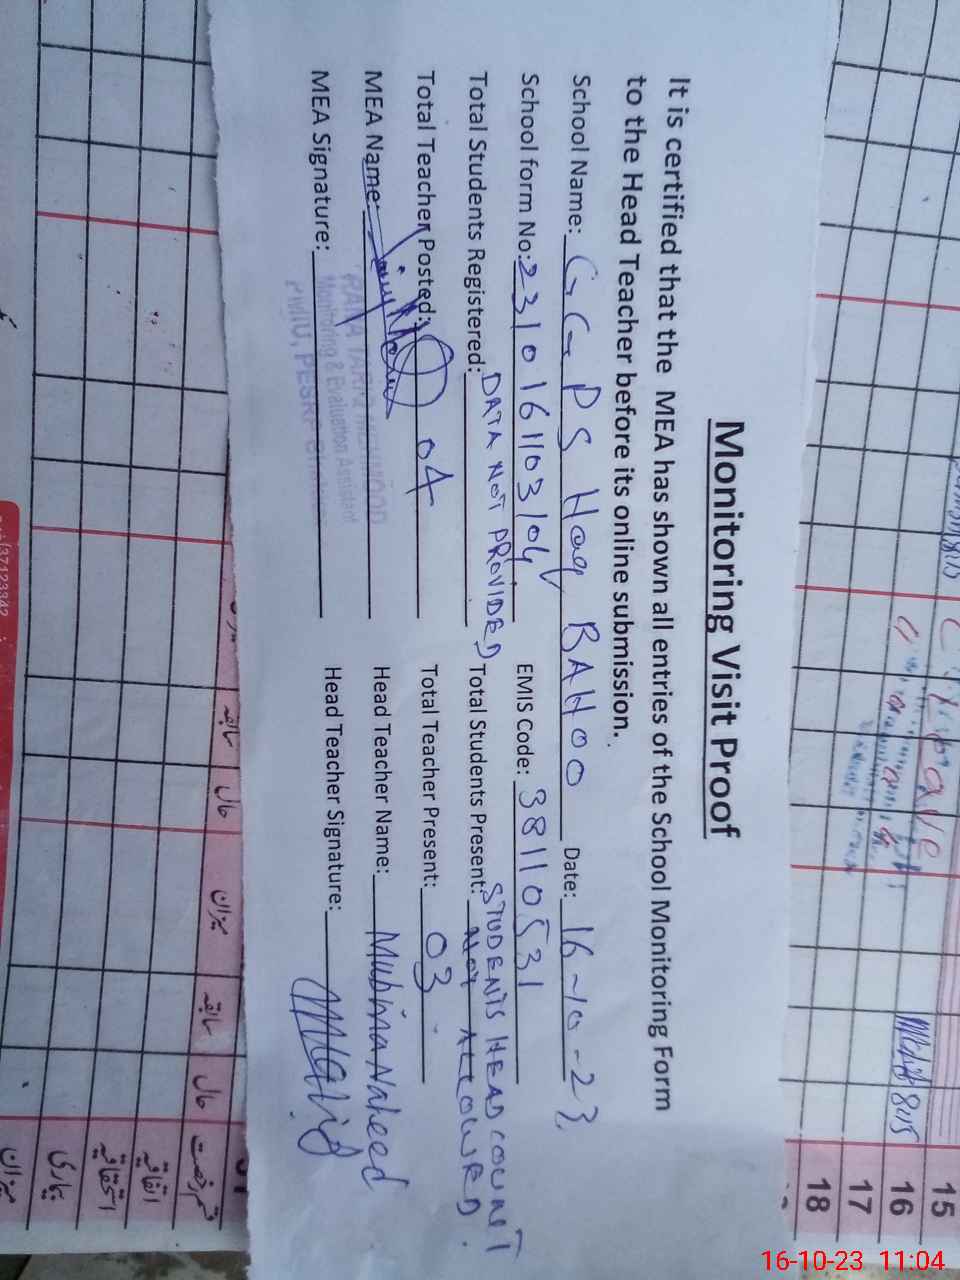 Monitoring Visit Proof
It is certified that the MEA has shown all entries of the School Monitoring Form
to the Head Teacher before its online submission.
School Name: G G PS Haq BAHOO Date: 16-10-23
School form No: 2310161103104 EMIS Code: 38110531
Total Students Registered: DATA NOT PROVIDED Total Students Present: STUDENTS HEAD COUNT NOT ALLOWED.
Total Teacher Posted: 04 Total Teacher Present: 03
MEA Name: Head Teacher Name: Mubina Naheed
RANA TARIQ MEHMOOD
Monitoring & Evaluation Assistant
PMIU, PESRP
MEA Signature: Head Teacher Signature:
15
16
17
18
حال
میزان
سابقہ
حال
قسم رخصت
اتفاقیہ
استحقاقیہ
بیماری
میزان
37123342
16-10-23 11:04